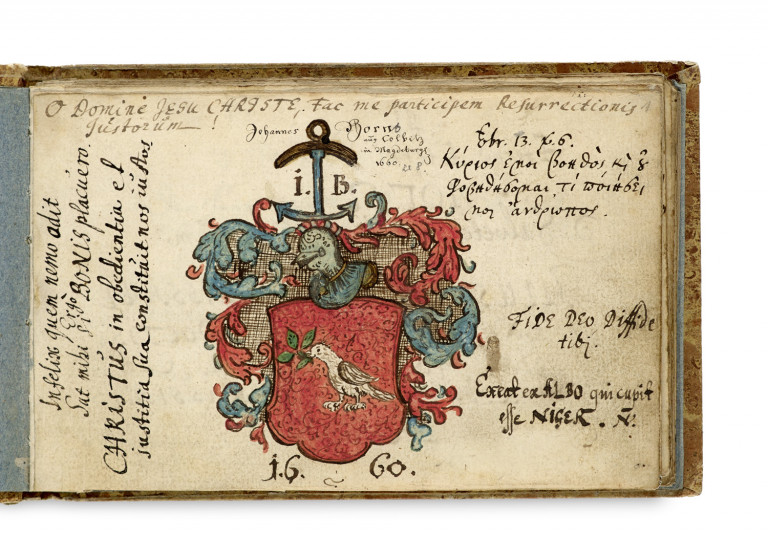 O Domine JESU CHRISTE, fac me participem Resurrectionis
Justorum!
Johannes Bornb
aus Colbitz
im Magdeburgl
1660.
I. B.
Ebr. 13. v. 6.
Κύριος ἐμοὶ βοηθὸς κὴ ȣ
φοβηθήσομαι τί ποιήσει
μοι ἄνθρωπος.
Infelix quem nemo odit
Ergò
Sat mihi si BONIS placuero.
CHRISTUS in obedientia et
justitia sua constituit nos justos
FIDE DEO Diffide
tibi.
Exeat ex ALBO qui cupit
esse NIGER. N.
16 60.